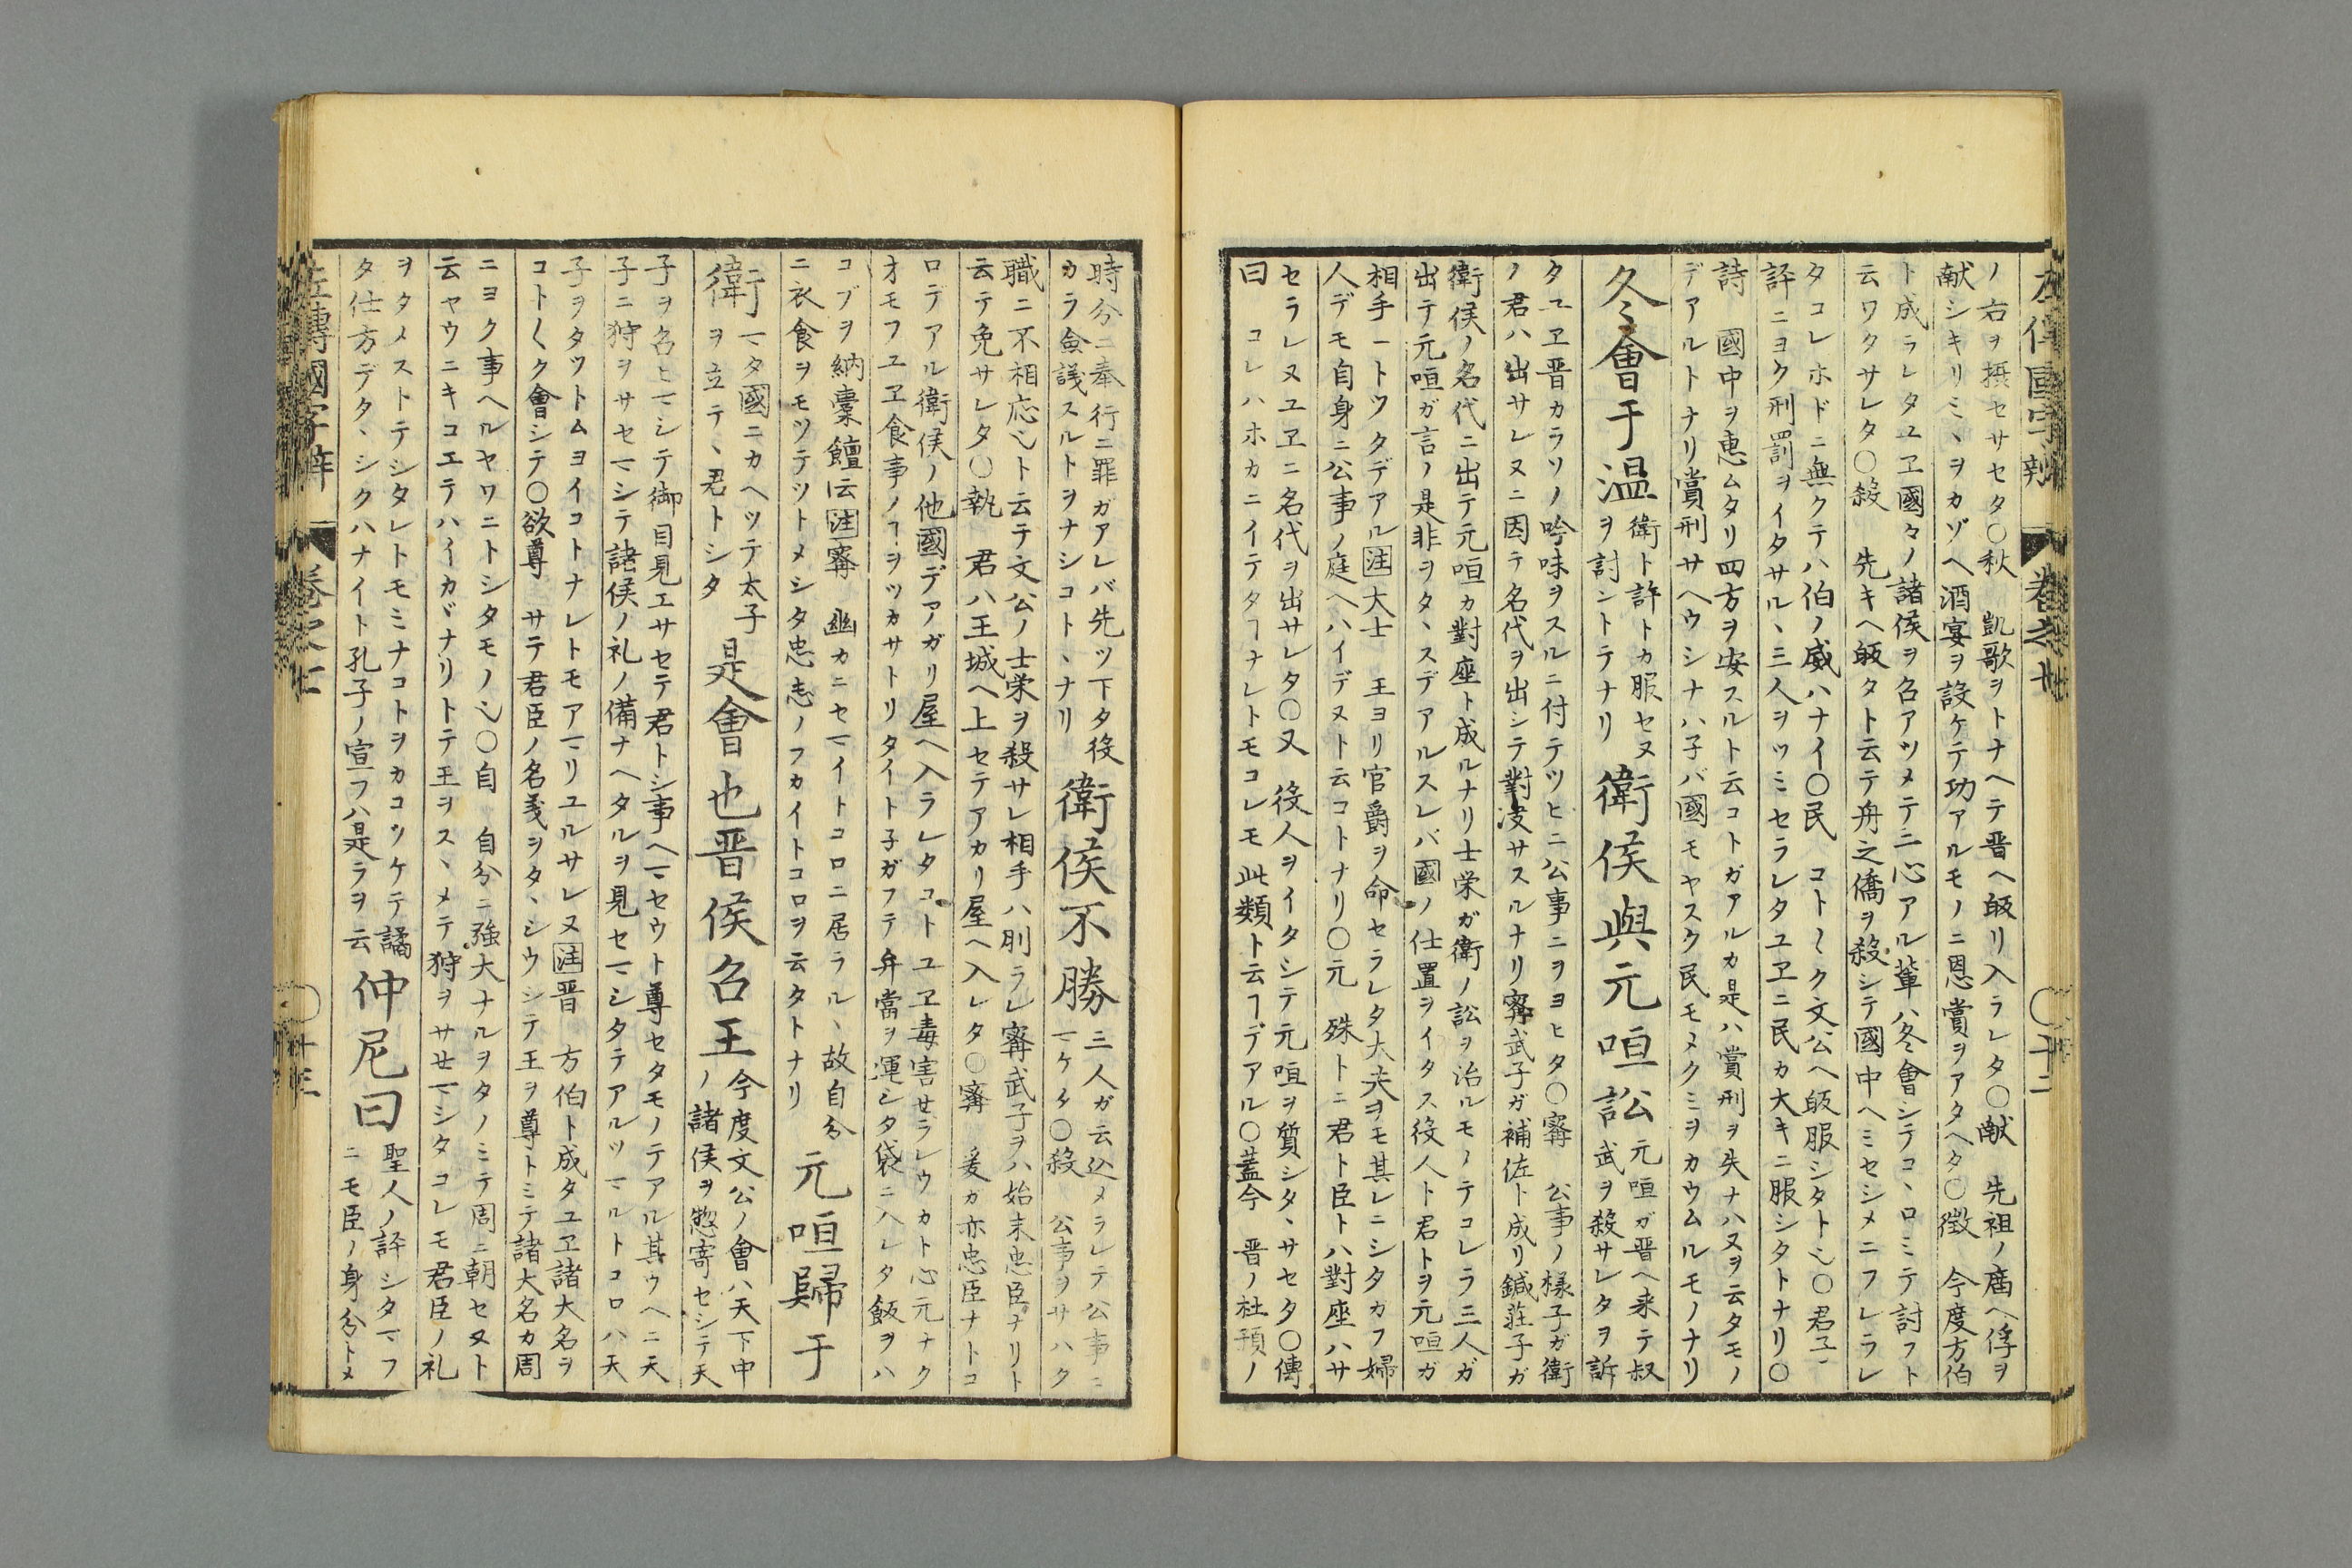 左傳國字辨 卷之七 〇十二
ノ右ヲ摂セサセタ〇秋 凱歌ヲトナヘテ晋ヘ皈リ入ラレタ〇献 先祖ノ庿ヘ俘ヲ
献シキリミヽヲカゾヘ酒宴ヲ設ケテ功アルモノニ恩賞ヲアタヘタ〇徴 今度方伯
ト成ラレタユヱ國々ノ諸侯ヲ召アツメテ二心アル輩ハ冬會シテコヽロミテ討フト
云ワタサレタ〇殺 先キヘ皈タト云テ舟之僑ヲ殺シテ國中ヘミセシメニフレラレ
タコレホドニ無クテハ伯ノ威ハナイ〇民 コト〳〵ク文公ヘ皈服シタト也〇君子
評ニヨク刑罰ヲイタサルヽ三人ヲツミセラレタユヱニ民カ大キニ服シタトナリ〇
詩 國中ヲ惠ムタリ四方ヲ安スルト云コトガアルカ是ハ賞刑ヲ失ナハヌヲ云タモノ
デアルトナリ賞刑サヘウシナハ子バ國モヤスク民モメクミヲカウムルモノナリ
冬會于温
衛ト許トカ服セヌ
ヲ討ントテナリ
衛侯與元咺訟
元咺ガ晋ヘ来テ叔
武ヲ殺サレタヲ訴
タユヱ晋カラソノ吟味ヲスルニ付テツヒニ公事ニヲヨヒタ〇甯 公事ノ様子ガ衛
ノ君ハ出サレヌニ因テ名代ヲ出シテ對决サスルナリ甯武子ガ補佐ト成リ鍼莊子ガ
衛侯ノ名代ニ出テ元咺カ對座ト成ルナリ士栄ガ衛ノ訟ヲ治ルモノテコレラ三人ガ
出テ元咺ガ言ノ是非ヲタヽスデアルスレバ國ノ仕置ヲイタス役人ト君トヲ元咺ガ
相手一トツタデアル注大士 王ヨリ官爵ヲ命セラレタ大夫ヲモ其レニシタカフ婦
人デモ自身ニ公事ノ庭ヘハイデヌト云コトナリ〇元 殊トニ君ト臣トハ對座ハサ
セラレヌユヱニ名代ヲ出サレタ〇又 役人ヲイタシテ元咺ヲ質シタヽサセタ〇傳
曰 コレハホカニイテタヿナレトモコレモ此類ト云ヿデアル〇蓋今 晋ノ杜預ノ
時分ニ奉行ニ罪ガアレバ先ツ下タ役
カラ僉議スルトヲナシコトヽナリ
衛侯不勝
三人ガ云込メラレテ公事ニ
マケタ〇殺 公事ヲサハク
職ニ不相応也ト云テ文公ノ士栄ヲ殺サレ相手ハ刖ラレ甯武子ヲハ始末忠臣ナリト
云テ免サレタ〇執 君ハ王城ヘ上セテアカリ屋ヘ入レタ〇甯 爰カ亦忠臣ナトコ
ロデアル衛侯ノ他國デアガリ屋ヘ入ラレタコトユヱ毒害セラレウカト心元ナク
オモフユヱ食事ノヿヲツカサトリタイト子ガフテ弁當ヲ運シタ袋ニ入レタ飯ヲハ
コブヲ納橐饘云注甯 幽カニセマイトコロニ居ラルヽ故自分
ニ衣食ヲモツテツトメシタ忠志ノフカイトコロヲ云タトナリ
元咺歸于
衛
マタ國ニカヘツテ太子
ヲ立テヽ君トシタ
是會也晋侯召王
今度文公ノ會ハ天下中
ノ諸侯ヲ惣寄セシテ天
子ヲ召ヒマシテ御目見エサセテ君トシ事ヘマセウト尊セタモノテアル其ウヘニ天
子ニ狩ヲサセマシテ諸侯ノ礼ノ備ナヘタルヲ見セマシタテアルツマルトコロハ天
子ヲタツトムヨイコトナレトモアマリユルサレヌ注晋 方伯ト成タユヱ諸大名ヲ
コト〳〵ク會シテ〇欲尊 サテ君臣ノ名義ヲタヽシウシテ王ヲ尊トミテ諸大名カ周
ニヨク事ヘルヤウニトシタモノ也〇自 自分ニ強大ナルヲタノミテ周ニ朝セヌト
云ヤウニキコエテハイカヾナリトテ王ヲスヽメテ狩ヲサセマシタコレモ君臣ノ礼
ヲタメストテシタレトモミナコトヲカコツケテ譎
タ仕方デタヽシクハナイト孔子ノ宣フハ是ラヲ云
仲尼曰
聖人ノ評シタマフ
ニモ臣ノ身分トメ
左傳國字辨 卷之七 〇十三